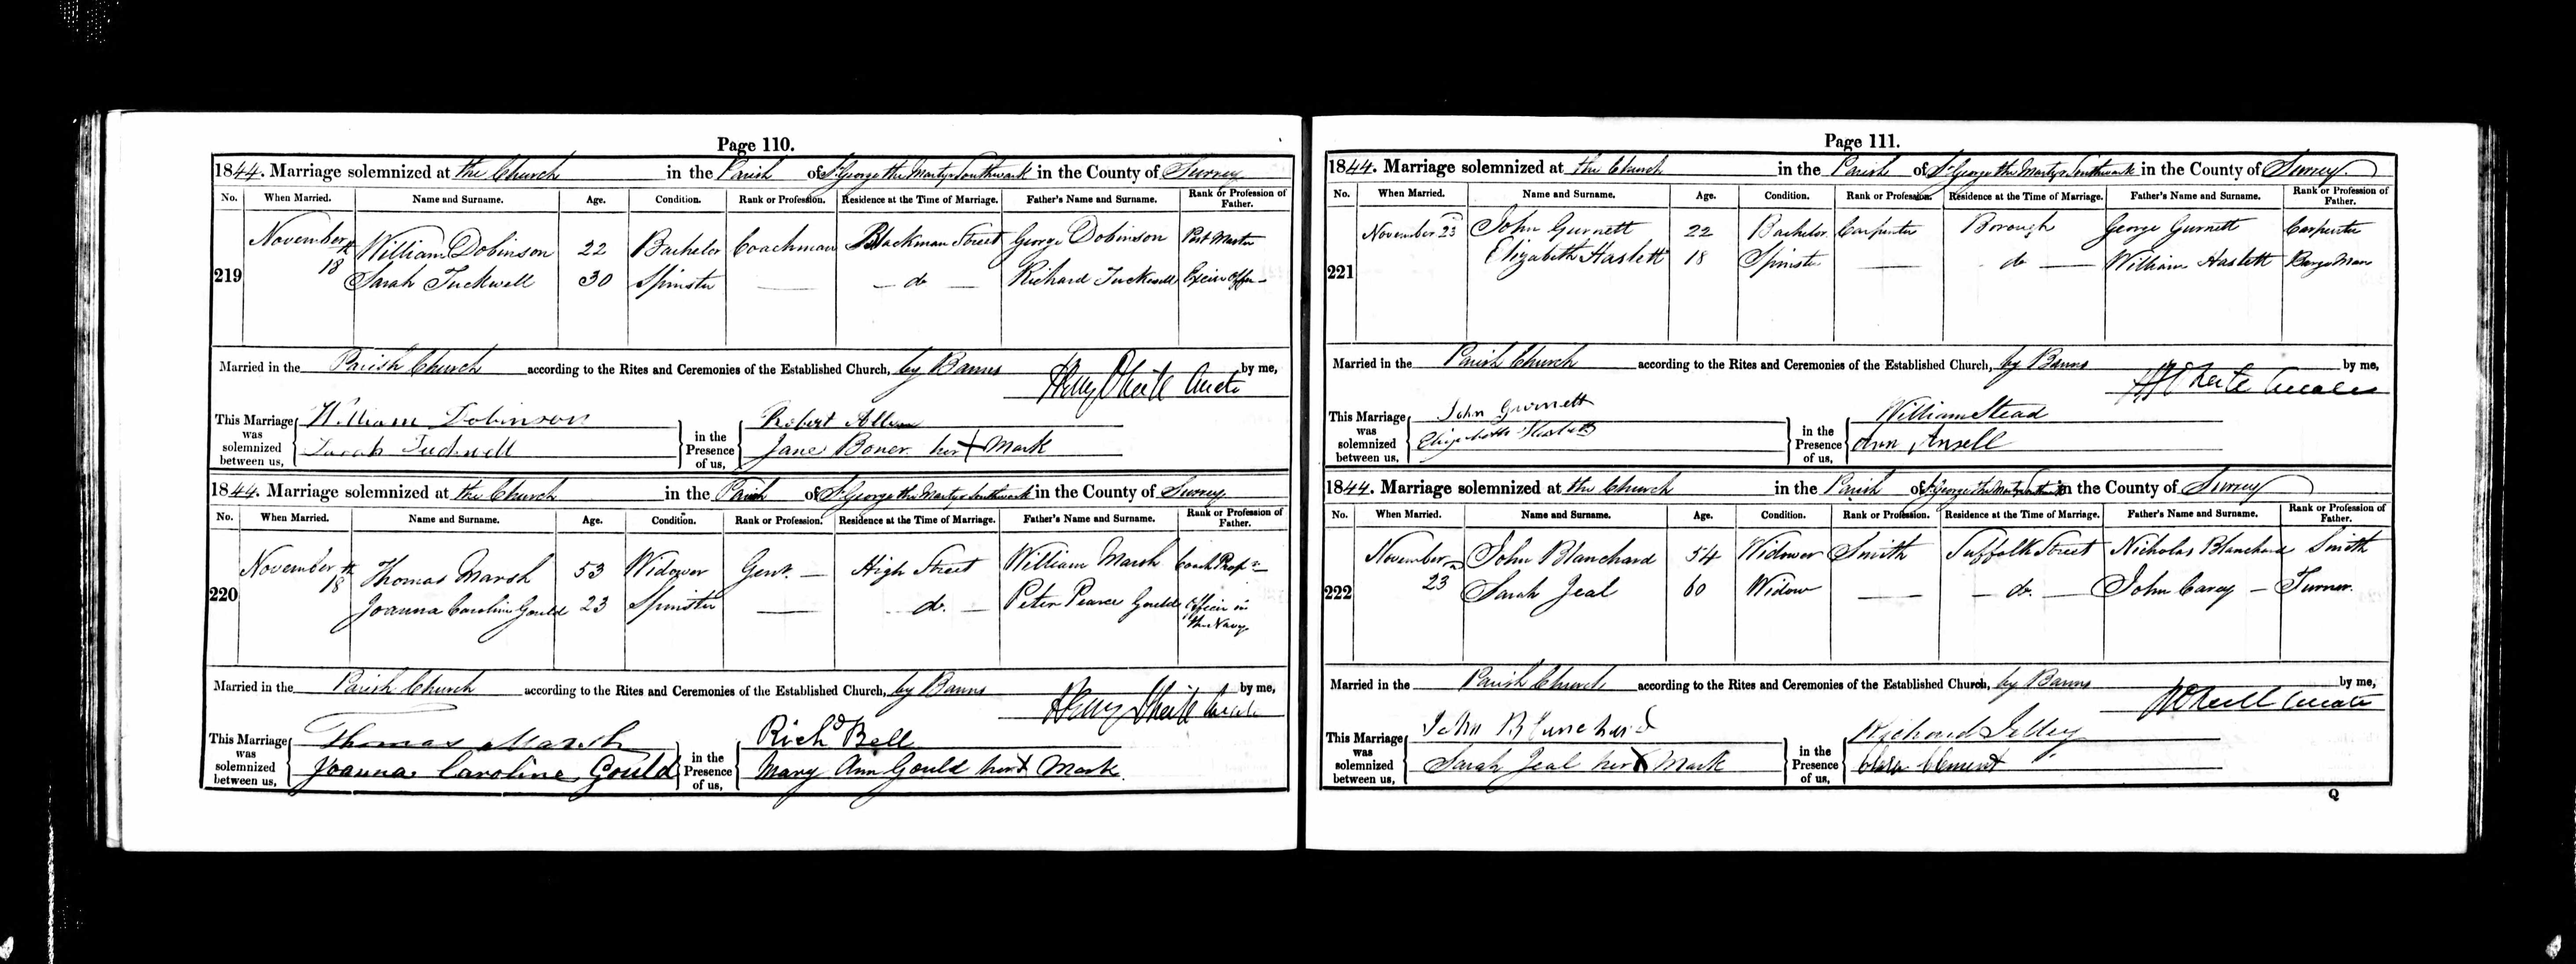 Page 110.
1844. Marriage solemnized at the Church in the Parish of St George the Martyr Southwark in the County of Surrey
No. When Married. Name and Surname. Age. Condition. Rank or Profession. Residence at the Time of Marriage. Father's Name and Surname. Rank or Profession of Father.
219 November 18th William Dobinson 22 Bachelor Coachman Blackman Street George Dobinson Post Master
Sarah Tuckwell 30 Spinster — do — Richard Tuckwell Excise Offr
Married in the Parish Church according to the Rites and Ceremonies of the Established Church, by Banns by me,
Curate
This Marriage was solemnized between us, William Dobinson in the Presence of us, Robert Allen
Sarah Tuckwell Jane Boner her X Mark
1844. Marriage solemnized at the Church in the Parish of St George the Martyr Southwark in the County of Surrey
No. When Married. Name and Surname. Age. Condition. Rank or Profession. Residence at the Time of Marriage. Father's Name and Surname. Rank or Profession of Father.
220 November 18th Thomas Marsh 53 Widower Gent. — High Street William Marsh Coach Propr
Joanna Caroline Gould 23 Spinster — do. — Peter Pearce Gould Officer in the Navy
Married in the Parish Church according to the Rites and Ceremonies of the Established Church, by Banns by me,
Curate
This Marriage was solemnized between us, Thomas Marsh in the Presence of us, Richd Bell
Joanna Caroline Gould Mary Ann Gould her X Mark.
Page 111.
1844. Marriage solemnized at the Church in the Parish of St George the Martyr Southwark in the County of Surrey.
No. When Married. Name and Surname. Age. Condition. Rank or Profession. Residence at the Time of Marriage. Father's Name and Surname. Rank or Profession of Father.
221 November 23 John Gurnett 22 Bachelor Carpenter Borough George Gurnett Carpenter
Elizabeth Haslett 18 Spinster — do — William Haslett Barge Man
Married in the Parish Church according to the Rites and Ceremonies of the Established Church, by Banns by me,
Curate
This Marriage was solemnized between us, John Gurnett in the Presence of us, William Stead
Elizabeth Haslett Ann Ansell
1844. Marriage solemnized at the Church in the Parish of St George the Martyr Southwark in the County of Surrey
No. When Married. Name and Surname. Age. Condition. Rank or Profession. Residence at the Time of Marriage. Father's Name and Surname. Rank or Profession of Father.
222 November 23 John Blanchard 54 Widower Smith Suffolk Street Nicholas Blanchard Smith
Sarah Jeal 60 Widow — do. — John Carey — Turner.
Married in the Parish Church according to the Rites and Ceremonies of the Established Church, by Banns by me,
Curate
This Marriage was solemnized between us, John Blanchard in the Presence of us, Richard
Sarah Jeal her X Mark Clement
Q